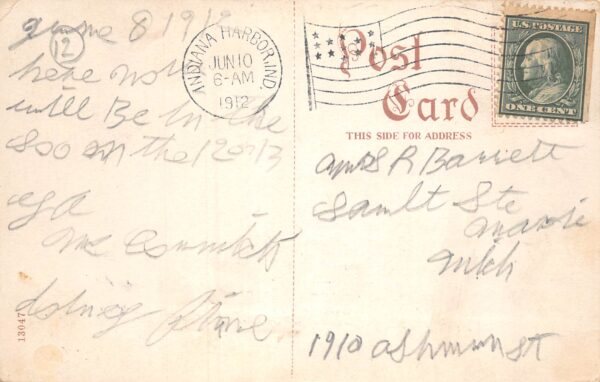 June 8 191
12
here now
will Be in the
Soo on the 12 or 13
doing fine
13047
INDIANA HARBOR, IND.
JUN 10
6-AM
1912
Post
Card
THIS SIDE FOR ADDRESS
U.S. POSTAGE
ONE CENT
S R Barrett
Sault Ste
Marie
Mich
1910 ashmun St